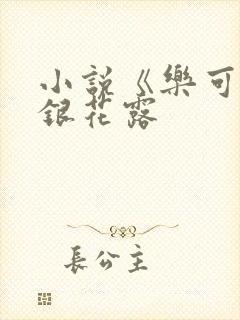 小說《樂可
銀花露
長公主